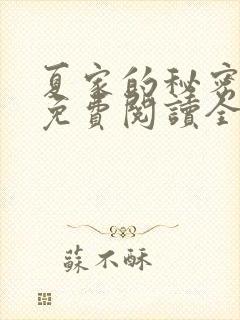 夏家的秘密
免費閱讀全
蘇不酥